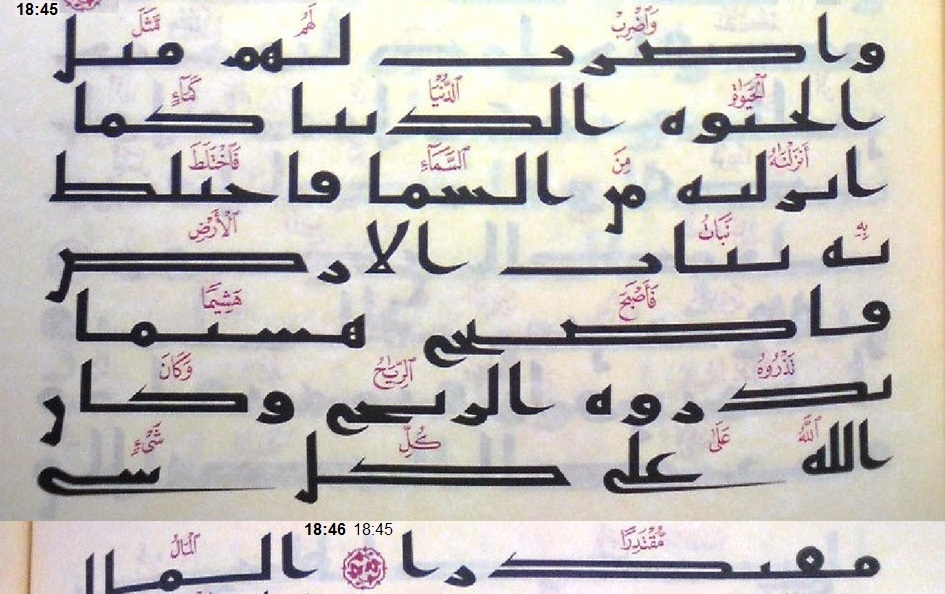 18:45
وَٱضْرِبْ لَهُم مَّثَلَ
واضرب لهم مثل
ٱلْحَيَوٰةِ ٱلدُّنْيَا كَمَآءٍ
الحيوه الدنيا كما
أَنزَلْنَـٰهُ مِنَ ٱلسَّمَآءِ فَٱخْتَلَطَ
انزلنه من السما فاختلط
بِهِۦ نَبَاتُ ٱلْأَرْضِ
به نبات الارض
فَأَصْبَحَ هَشِيمًا
فاصبح هشيما
تَذْرُوهُ ٱلرِّيَـٰحُ وَكَانَ
تذروه الريح وكان
ٱللَّهُ عَلَىٰ كُلِّ شَىْءٍ
الله على كل شى
18:46 18:45
مُّقْتَدِرًا ٱلْمَالُ
مقتدرا المال